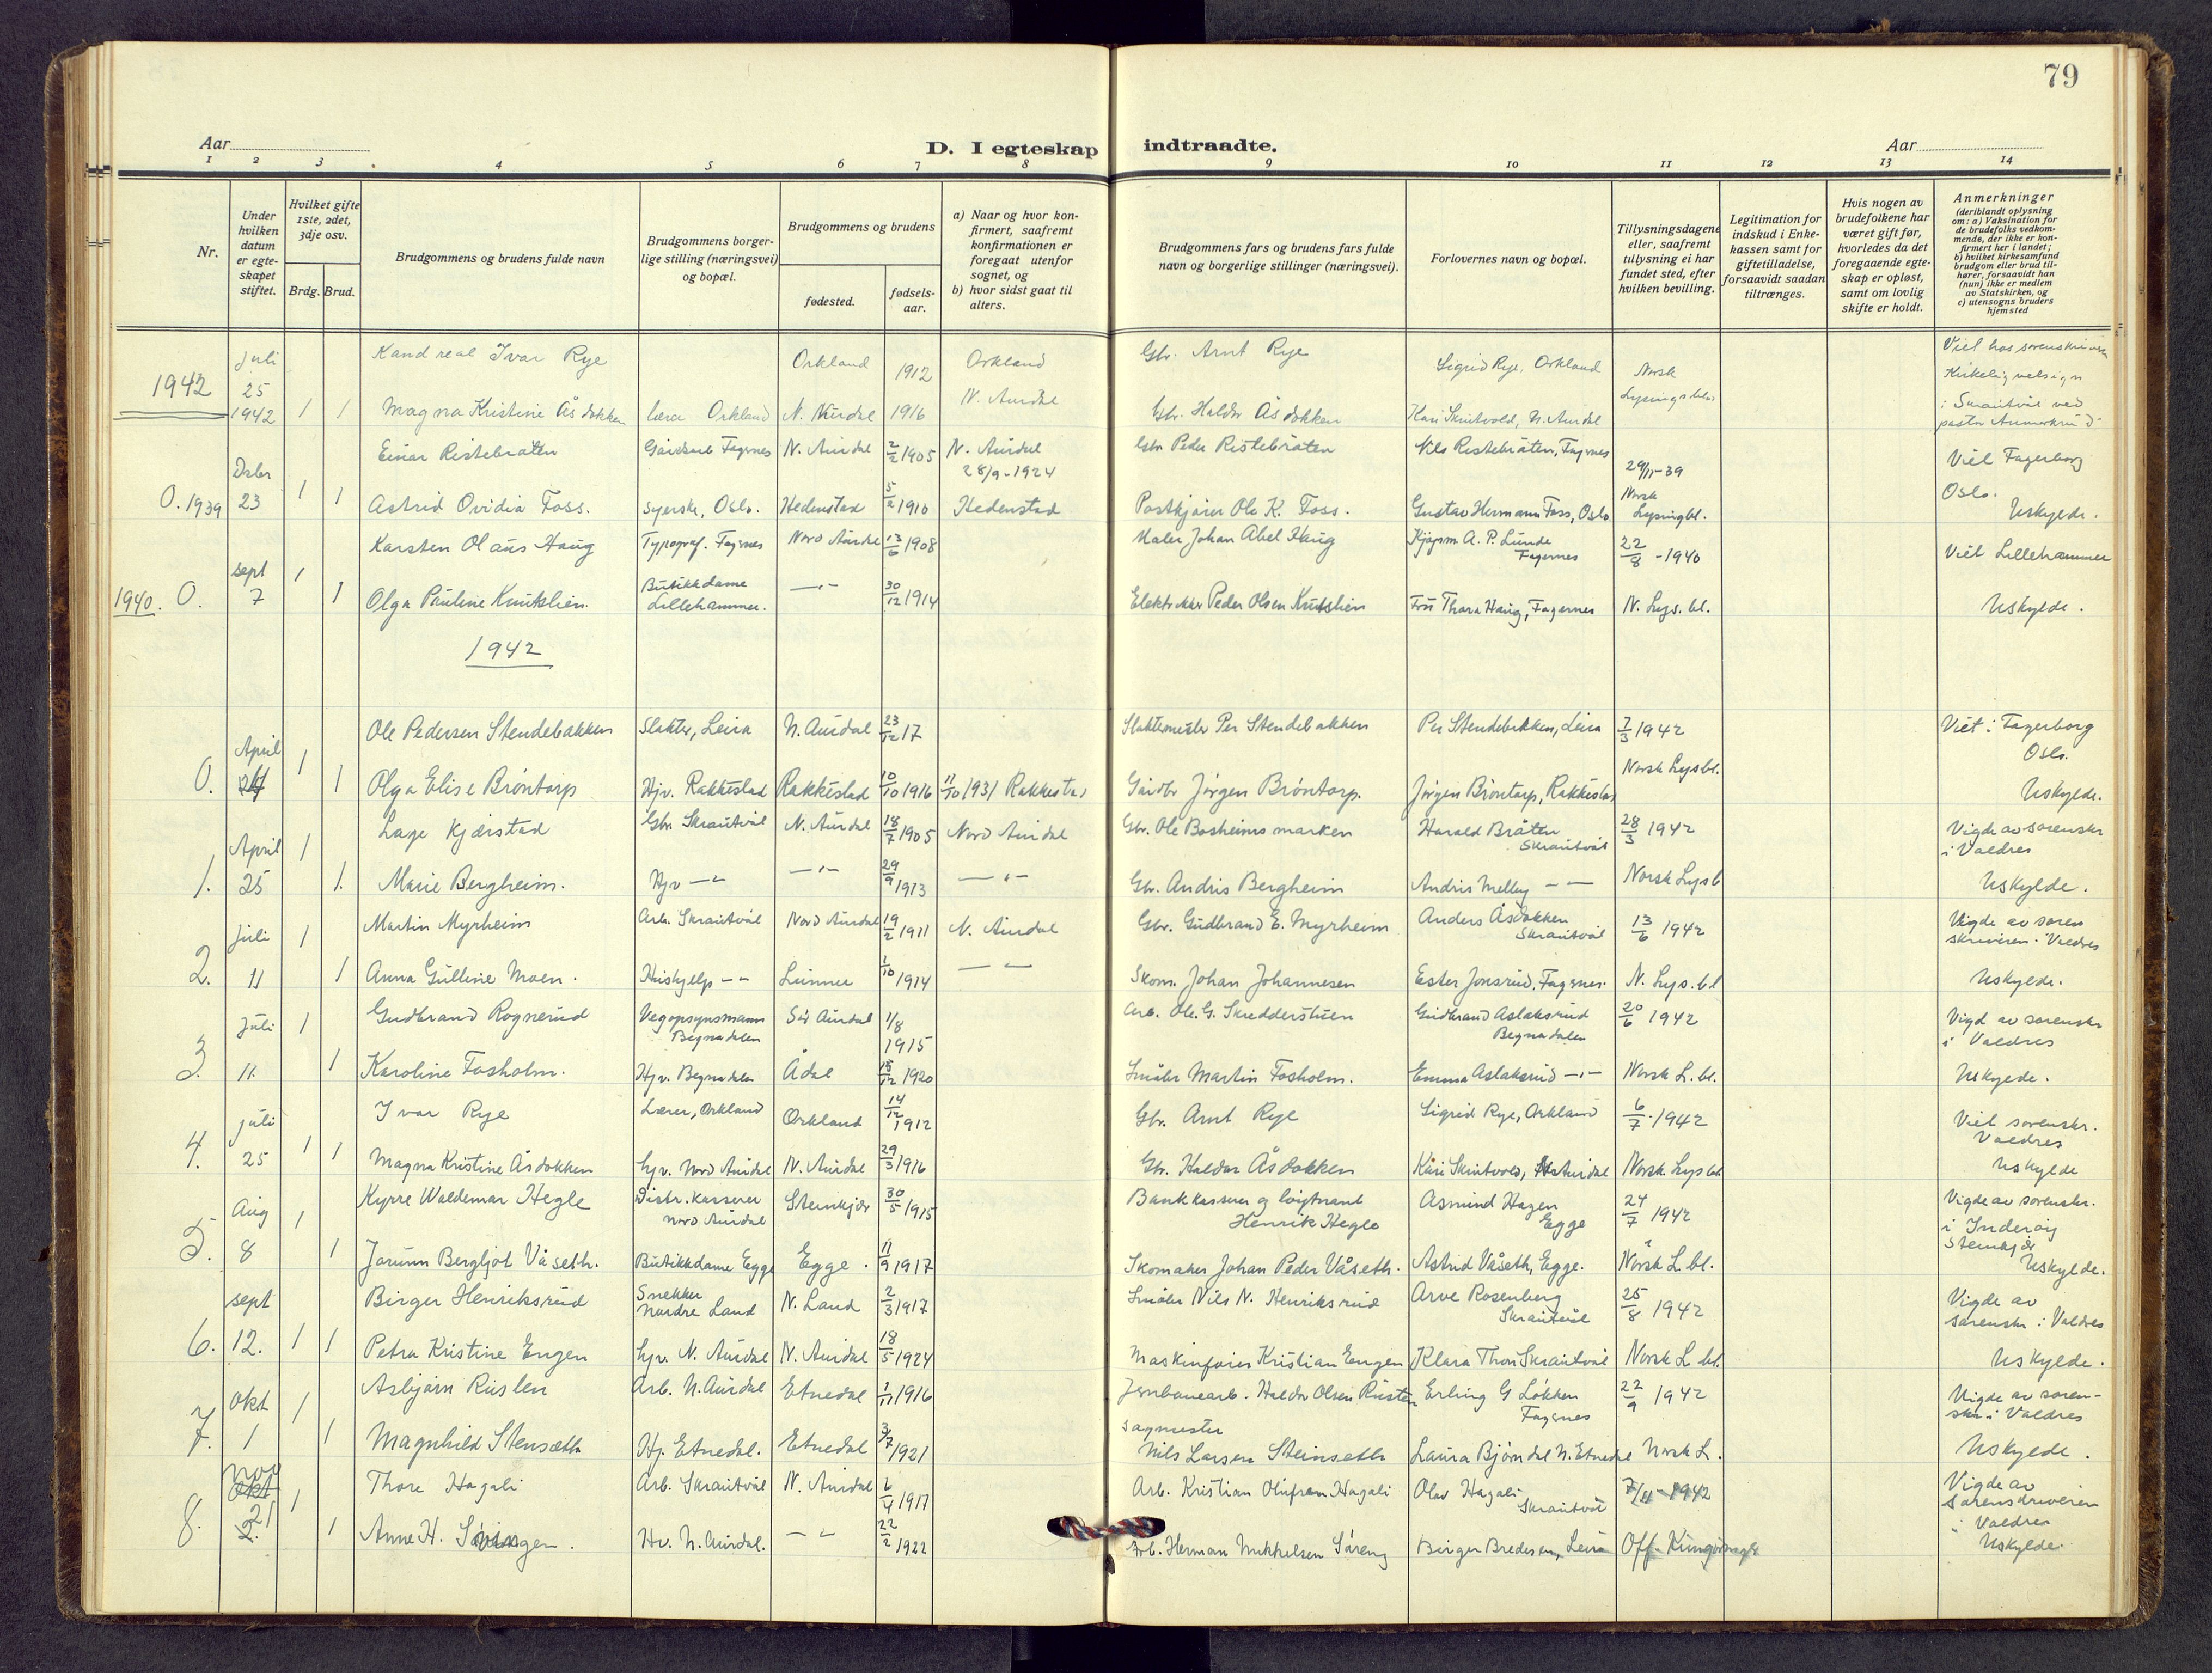 79
Aar
D. I egteskap indtraadte.
Aar
1 2 3 4 5 6 7 8 9 10 11 12 13 14
Nr.
Under hvilken datum er egteskapet stiftet.
Hvilket gifte 1ste, 2det, 3dje osv.
Brdg. Brud.
Brudgommens og brudens fulde navn
Brudgommens borgerlige stilling (næringsvei) og bopæl.
Brudgommens og brudens
fødested.
fødselsaar.
a) Naar og hvor konfirmert, saafremt konfirmationen er foregaat utenfor sognet, og
b) hvor sidst gaat til alters.
Brudgommens fars og brudens fars fulde navn og borgerlige stillinger (næringsvei).
Forlovernes navn og bopæl.
Tillysningsdagene eller, saafremt tillysning ei har fundet sted, efter hvilken bevilling.
Legitimation for indskud i Enkekassen samt for giftetilladelse, forsaavidt saadan tiltrænges.
Hvis nogen av brudefolkene har været gift før, hvorledes da det foregaaende egteskap er opløst, samt om lovlig skifte er holdt.
Anmerkninger
(deriblandt oplysning om: a) Vaksination for de brudefolks vedkommende, der ikke er konfirmert her i landet;
b) hvilket kirkesamfund brudgom eller brud tilhører, forsaavidt han (hun) ikke er medlem av Statskirken, og
c) utensogns bruders hjemsted
1942 juli 25 1942 Kand real Ivar Rye Orkland 1912 Orkland Gbr. Arnt Rye Sigrid Rye, Orkland Norsk Lysingsblad Viet hos sorenskriveren
1 1 Magna Kristine Åsdokken lærer Orkland N. Aurdal 1916 N. Aurdal Gbr. Haldor Åsdokken Kari Skrutvold, N. Aurdal Kirkelig velsign i Skrautvål ved pastor
Einar Ristebråten Gårdbr. Fagernes N. Aurdal 2/2 1905 N. Aurdal 28/9-1924 Gbr. Peder Ristebråten Nils Ristebråten, Fagernes 29/11-39 Viet Fagerborg Oslo.
0. 1939 Desbr 23 1 1 Astrid Ovidia Foss. syerske, Oslo. Hedenstad 1910 Hedenstad Postkjører Ole K. Foss. Gustav Hermann Foss, Oslo Norsk Lysingbl. Uskylde.
Karsten Olaus Haug Typograf. Fagernes Nord Aurdal 13/6 1908 Maler Johan Abel Haug Kjøpm A. P. Lunde Fagernes 22/8 -1940 Viet Lillehammer
1940. 0. sept 7 1 1 Olga Pauline Knutslien. Butikkdame Lillehammer. —"— 30/12 1914 Elektriker Peder Olsen Knutslien Frü Thora Haug, Fagernes N. Lys. bl. Uskylde.
1942
Ole Pedersen Stendebakken Slakter, Leira N. Aurdal 23/12 17 Slaktermester Per Stendebakken Per Stendebakken, Leira 7/3 1942 Viet i Fagerborg Oslo.
0. April 1 1 Olga Elise Brøntorp Hjv. Rakkestad Rakkestad 10/10 1916 11/10 1931 Rakkestad Gårdbr Jørgen Brøntorp. Jørgen Brøntorp, Rakkestad Norsk Lysbl. Uskylde.
Lage Kjærstad Gbr. Skrautvål N. Aurdal 18/7 1905 Nord Aurdal Gbr. Ole Bosheimsmarken Harald Bråten Skrautvål 28/3 1942 Vigde av sorenskr i Valdres
1. April 25 1 1. Marie Bergheim. Hjv —"— —"— 29/9 1913 —"— Gbr. Andris Bergheim Andris Melby —"— Norsk Lysb Uskylde.
Martin Myrheim Arb. Skrautvål Nord Aurdal 19/2 1911 N. Aurdal Gbr. Gudbrand E. Myrheim Anders Åsdokken Skrautvål 13/6 1942 Vigde av sorenskriveren i Valdres
2. juli 11 1 1 Anna Gulline Moen. Hushjelp —"— Lunner 1/10 1914 —"— Skom. Johan Johannesen Ester Jonsrud, Fagernes. N. Lys. bl Uskylde.
Gudbrand Rognerud Vegopsynsmann Begnadalen Sør Aurdal 1/8 1915 Arb. Ole. G. Skredderstuen Gudbrand Aslaksrud Begnadalen 20/6 1942 Vigd av sorenskr i Valdres
3. juli 11. 1 1 Karoline Fosholm. Hjv. Begnadalen Ådal 15/12 1920 Småbr Martin Fosholm. Emma Aslaksrud —"— Norsk L. bl. Uskyede.
Ivar Rye Lærer, Orkland Orkland 14/12 1912 Gbr. Arnt Rye Sigrid Rye, Orkland 6/7. 1942 Viet sorenskr. Valdres
4. juli 25 1 1 Magna Kristine Åsdokken hjv. Nord Aurdal N. Aurdal 29/3 1916 Gbr. Haldor Åsdokken Kari Skrutvold, N. Aurdal Norsk Lysbl Uskylde
Kyrre Waldemar Hegle Distr. kasserer Nord Aurdal Steinkjer 30/5 1915 Bankkasserer og løytnant Henrik Hegle Asmund Hagen Egge 24/7 1942 Vigde av sorenskr. i Inderøy Steinkjer
5. Aug 8 1 1 Jorunn Bergljot Våseth. Butikkdame Egge Egge. 11/9 1917 Skomaker Johan Peder Våseth. Astrid Våseth, Egge. Norsk L. bl. Uskylde.
Birger Henriksrud Snekker Nordre Land N. Land 2/3 1917 Småbr Nils N. Henriksrud Arve Rosenberg Skrautvål 25/8 1942 Vigde av sorenskr. i Valdres
6. sept 12. 1 1 Petra Kristine Engen hjv. N. Aurdal N. Aurdal 18/5 1924 Maskinfører Kristian Engen Klara Thon Skrautvål Norsk L. bl. Uskylde.
Asbjørn Rusten Arb. N. Aurdal Etnedal 1/11 1916 Jernbanearb. Haldor Olsen Rusten Erling G Løkken Fagernes 22/9 1942 Vigde av sorenskr. i Valdres
7. okt 1 1 1 Magnhild Stensæth Hj. Etnedal. Etnedal 3/7 1921 sagmester Nils Larsen Steinseth Laura Bjørndal N. Etnedal Norsk L. Uskylde.
Thore Hagali Arb. Skrautvål N. Aurdal 6/4 1917 Arb. Kristian Olufsen Hagali Olav Hagali Skrautvål 7/11 - 1942 Vigde av Sorenskriveren i Valdres
8. nov okt 21 2. 1 1 Anne H. Hv. N. Aurdal. —"— 22/2 1922 Arb. Herman Mikkelsen Søreng Birger Bredesen, Leira Off. Uskylde.